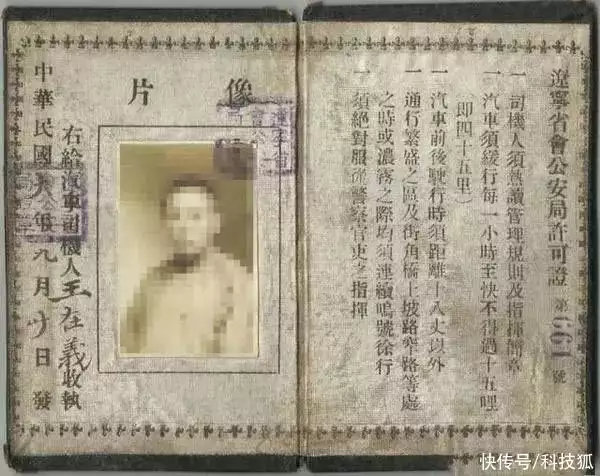 遼寧省會公安局許可證 第 661 號
一 司機人須熟讀管理規則及指揮簡章
一 汽車須緩行每一小時至快不得過十五哩
(即四十五里)
一 汽車前後駛行時須距離十八丈以外
一 通行繁盛之區及街角橋上坡路窄路等處
之時或濃霧之際均須連續鳴號徐行
一 須絕對服從警察官吏之指揮
像片
右給汽車司機人王在義收執
中華民國年九月日發
快传号/科技狐